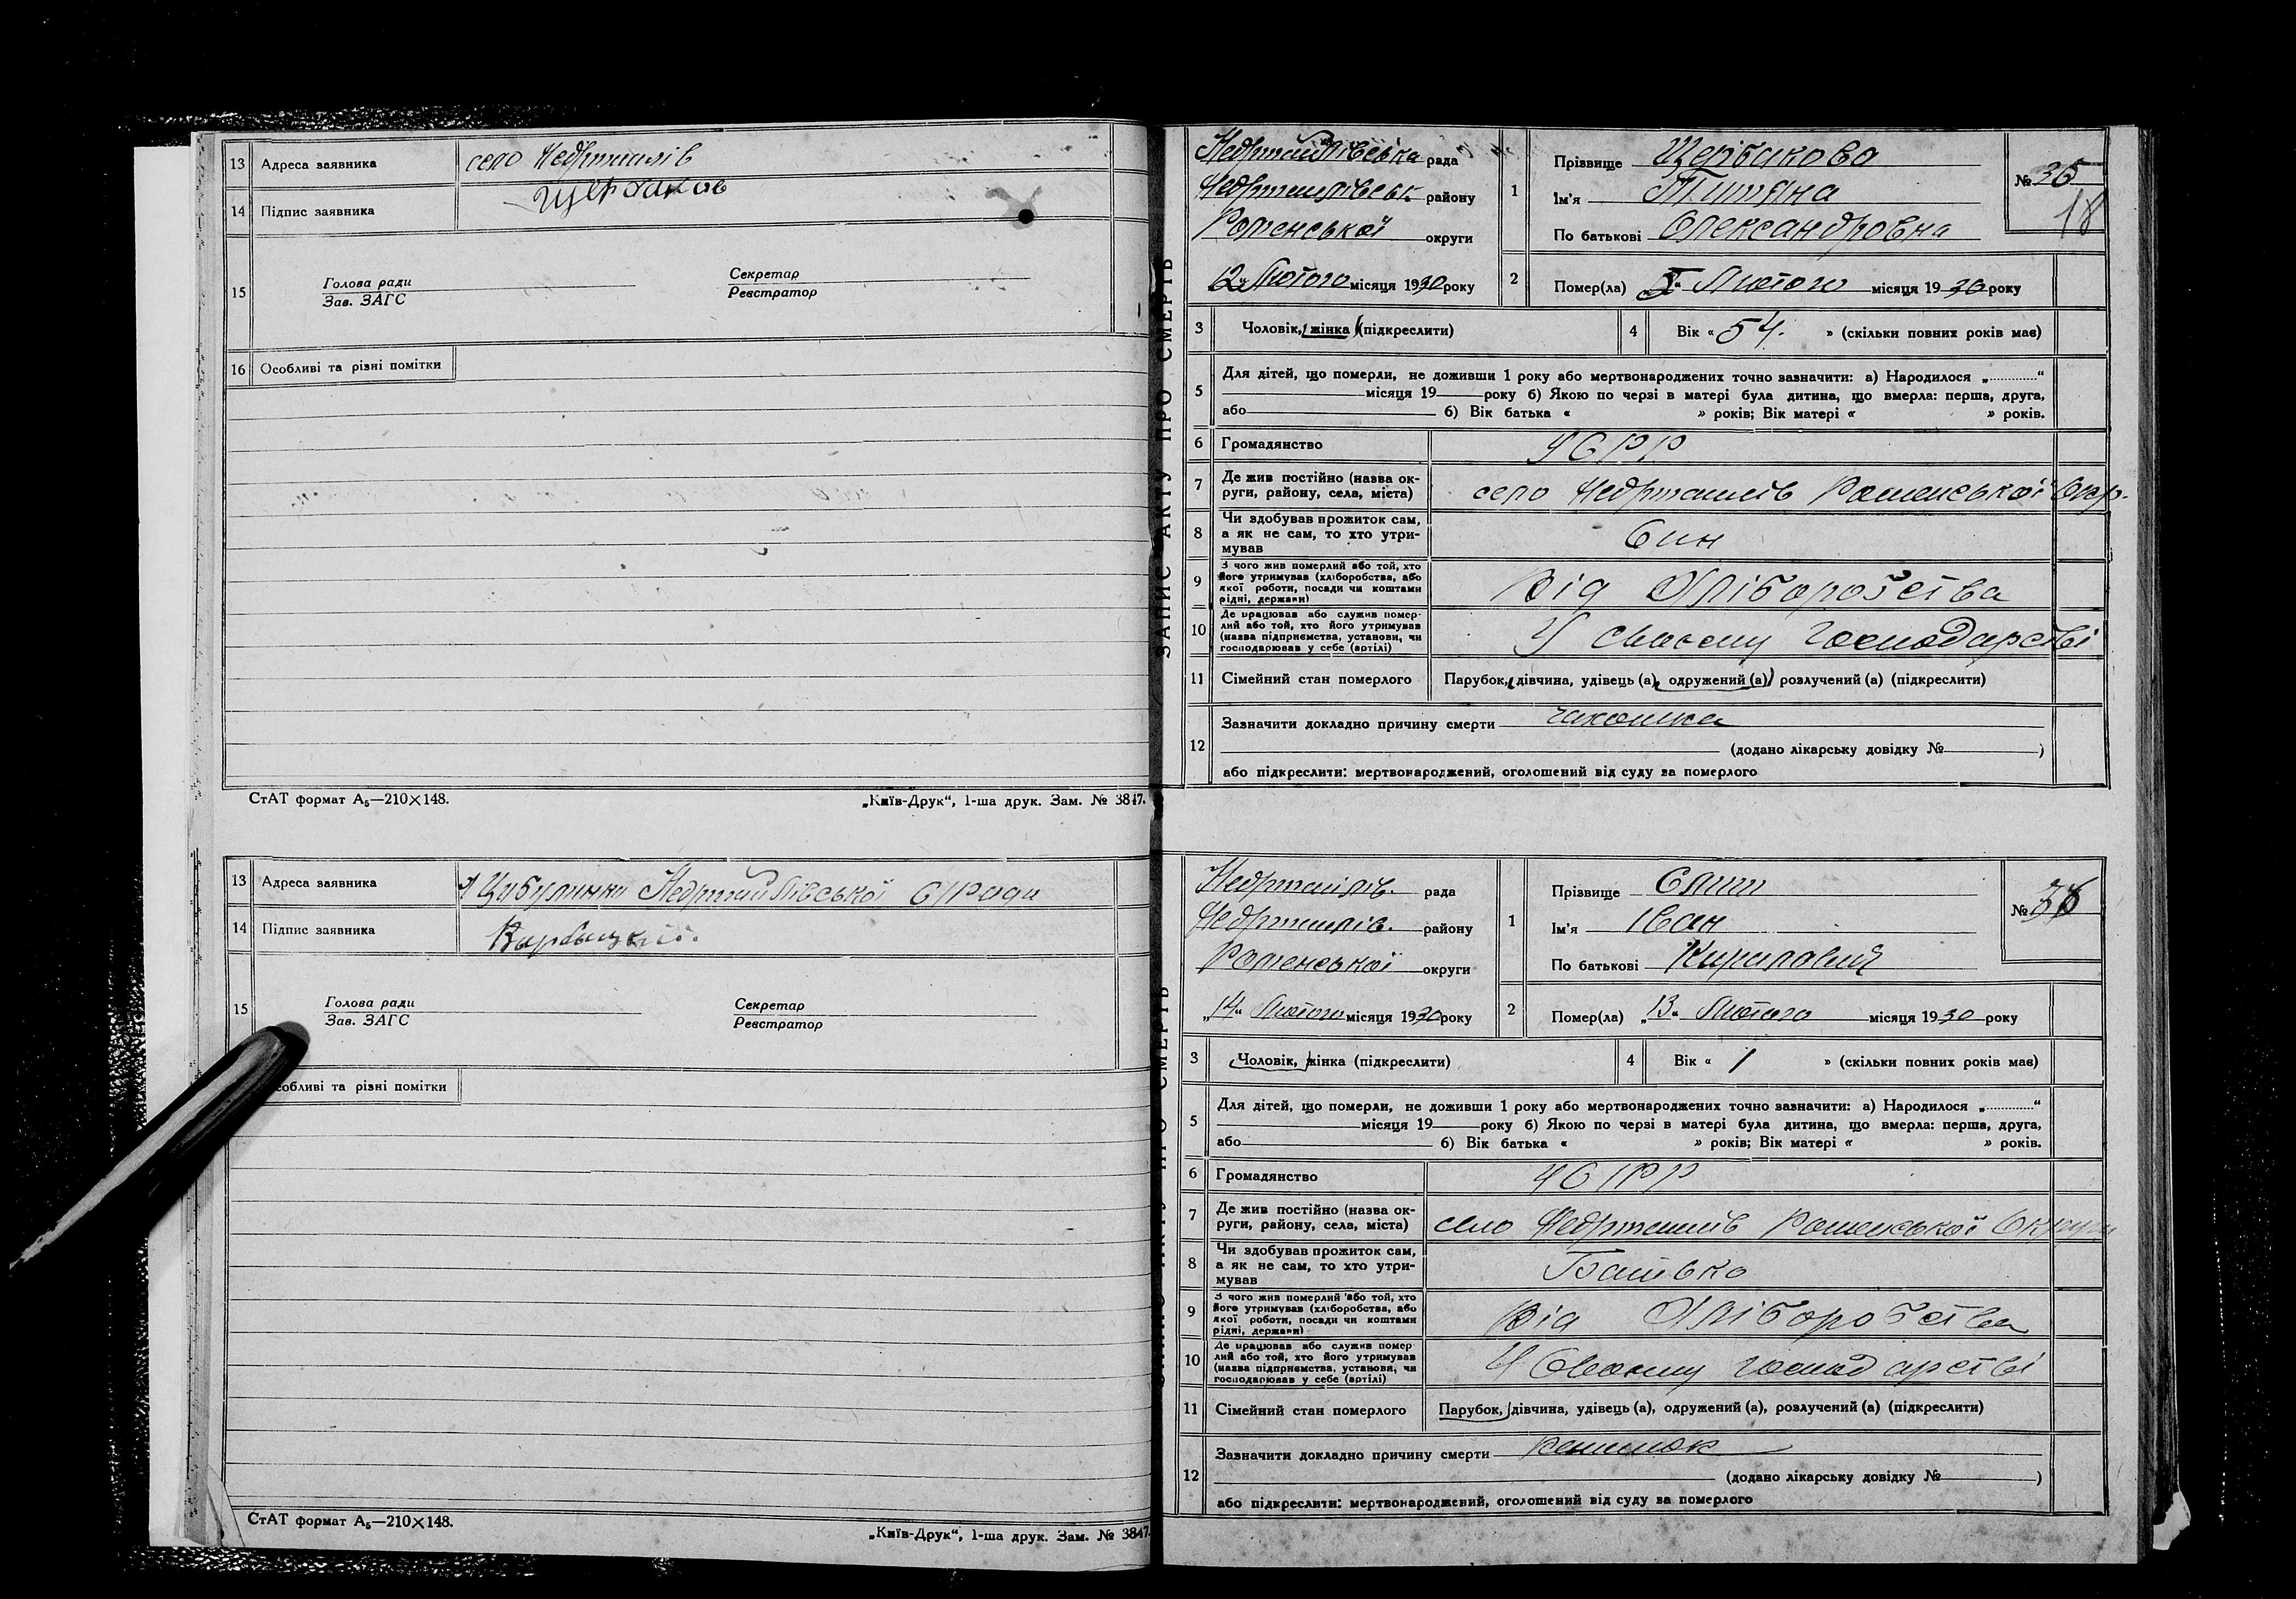 13 Адреса заявника село Недригайлів
14 Підпис заявника Щербаков
15 Голова ради Секретар
Зав. ЗАГС Реєстратор
16 Особливі та різні помітки
СтАТ формат А₅—210×148. „Київ-Друк“, 1-ша друк. Зам. № 3847.
13 Адреса заявника Недригайлівської С/Ради
14 Підпис заявника
15 Голова ради Секретар
Зав. ЗАГС Реєстратор
собливі та різні помітки
СтАТ формат А₅—210×148. „Київ-Друк“, 1-ша друк. Зам. № 3847
ЗАПИС АКТУ ПРО СМЕРТЬ
Недригайлівська рада
Недригайлівськ. району
Роменської округи
12 Лютого місяця 1930 року
1 Прізвище Щербакова
Ім'я Титяна
По батькові Олександровна
№ 35
18
2 Помер(ла) Лютого місяця 1930 року
3 Чоловік, жінка (підкреслити)
4 Вік « 54. » (скільки повних років мав)
5 Для дітей, що померли, не доживши 1 року або мертвонароджених точно зазначити: а) Народилося „............“
місяця 19 року б) Якою по черзі в матері була дитина, що вмерла: перша, друга,
або б) Вік батька « » років; Вік матері « » років.
6 Громадянство УСРР
7 Де жив постійно (назва ок-
руги, району, села, міста) село Недригайлів Роменської Окр.
8 Чи здобував прожиток сам,
а як не сам, то хто утри-
мував Син
9 З чого жив померлий або той, хто
його утримував (хліборобства, або
якої роботи, посади чи коштами
рідні, держави) Від Хліборобства
10 Де працював або служив помер-
лий або той, хто його утримував
(назва підприємства, установи, чи
господарював у себе (артілі) У своєму Господарстві
11 Сімейний стан померлого Парубок, дівчина, удівець (а), одружений (а) розлучений (а) (підкреслити)
12 Зазначити докладно причину смерти чахотка
(додано лікарську довідку № )
або підкреслити: мертвонароджений, оголошений від суду за померлого
Недригайлів. рада
Недригайлів. району
Роменської округи
„14“ Лютого місяця 1930 року
1 Прізвище
Ім'я Іван
По батькові Кирилович
№ 36
2 Помер(ла) „13“ Лютого місяця 1930 року
3 Чоловік, жінка (підкреслити)
4 Вік « 1 » (скільки повних років мав)
5 Для дітей, що померли, не доживши 1 року або мертвонароджених точно зазначити: а) Народилося „............“
місяця 19 року б) Якою по черзі в матері була дитина, що вмерла: перша, друга,
або б) Вік батька « » років; Вік матері « » років.
6 Громадянство УСРР
7 Де жив постійно (назва ок-
руги, району, села, міста) село Недригайлів Роменської Округи
8 Чи здобував прожиток сам,
а як не сам, то хто утри-
мував Батько
9 З чого жив померлий або той, хто
його утримував (хліборобства, або
якої роботи, посади чи коштами
рідні, держави) Від Хліборобства
10 Де працював або служив помер-
лий або той, хто його утримував
(назва підприємства, установи, чи
господарював у себе (артілі) У Своєму господарстві
11 Сімейний стан померлого Парубок, дівчина, удівець (а), одружений (а), розлучений (а) (підкреслити)
12 Зазначити докладно причину смерти
(додано лікарську довідку № )
або підкреслити: мертвонароджений, оголошений від суду за померлого